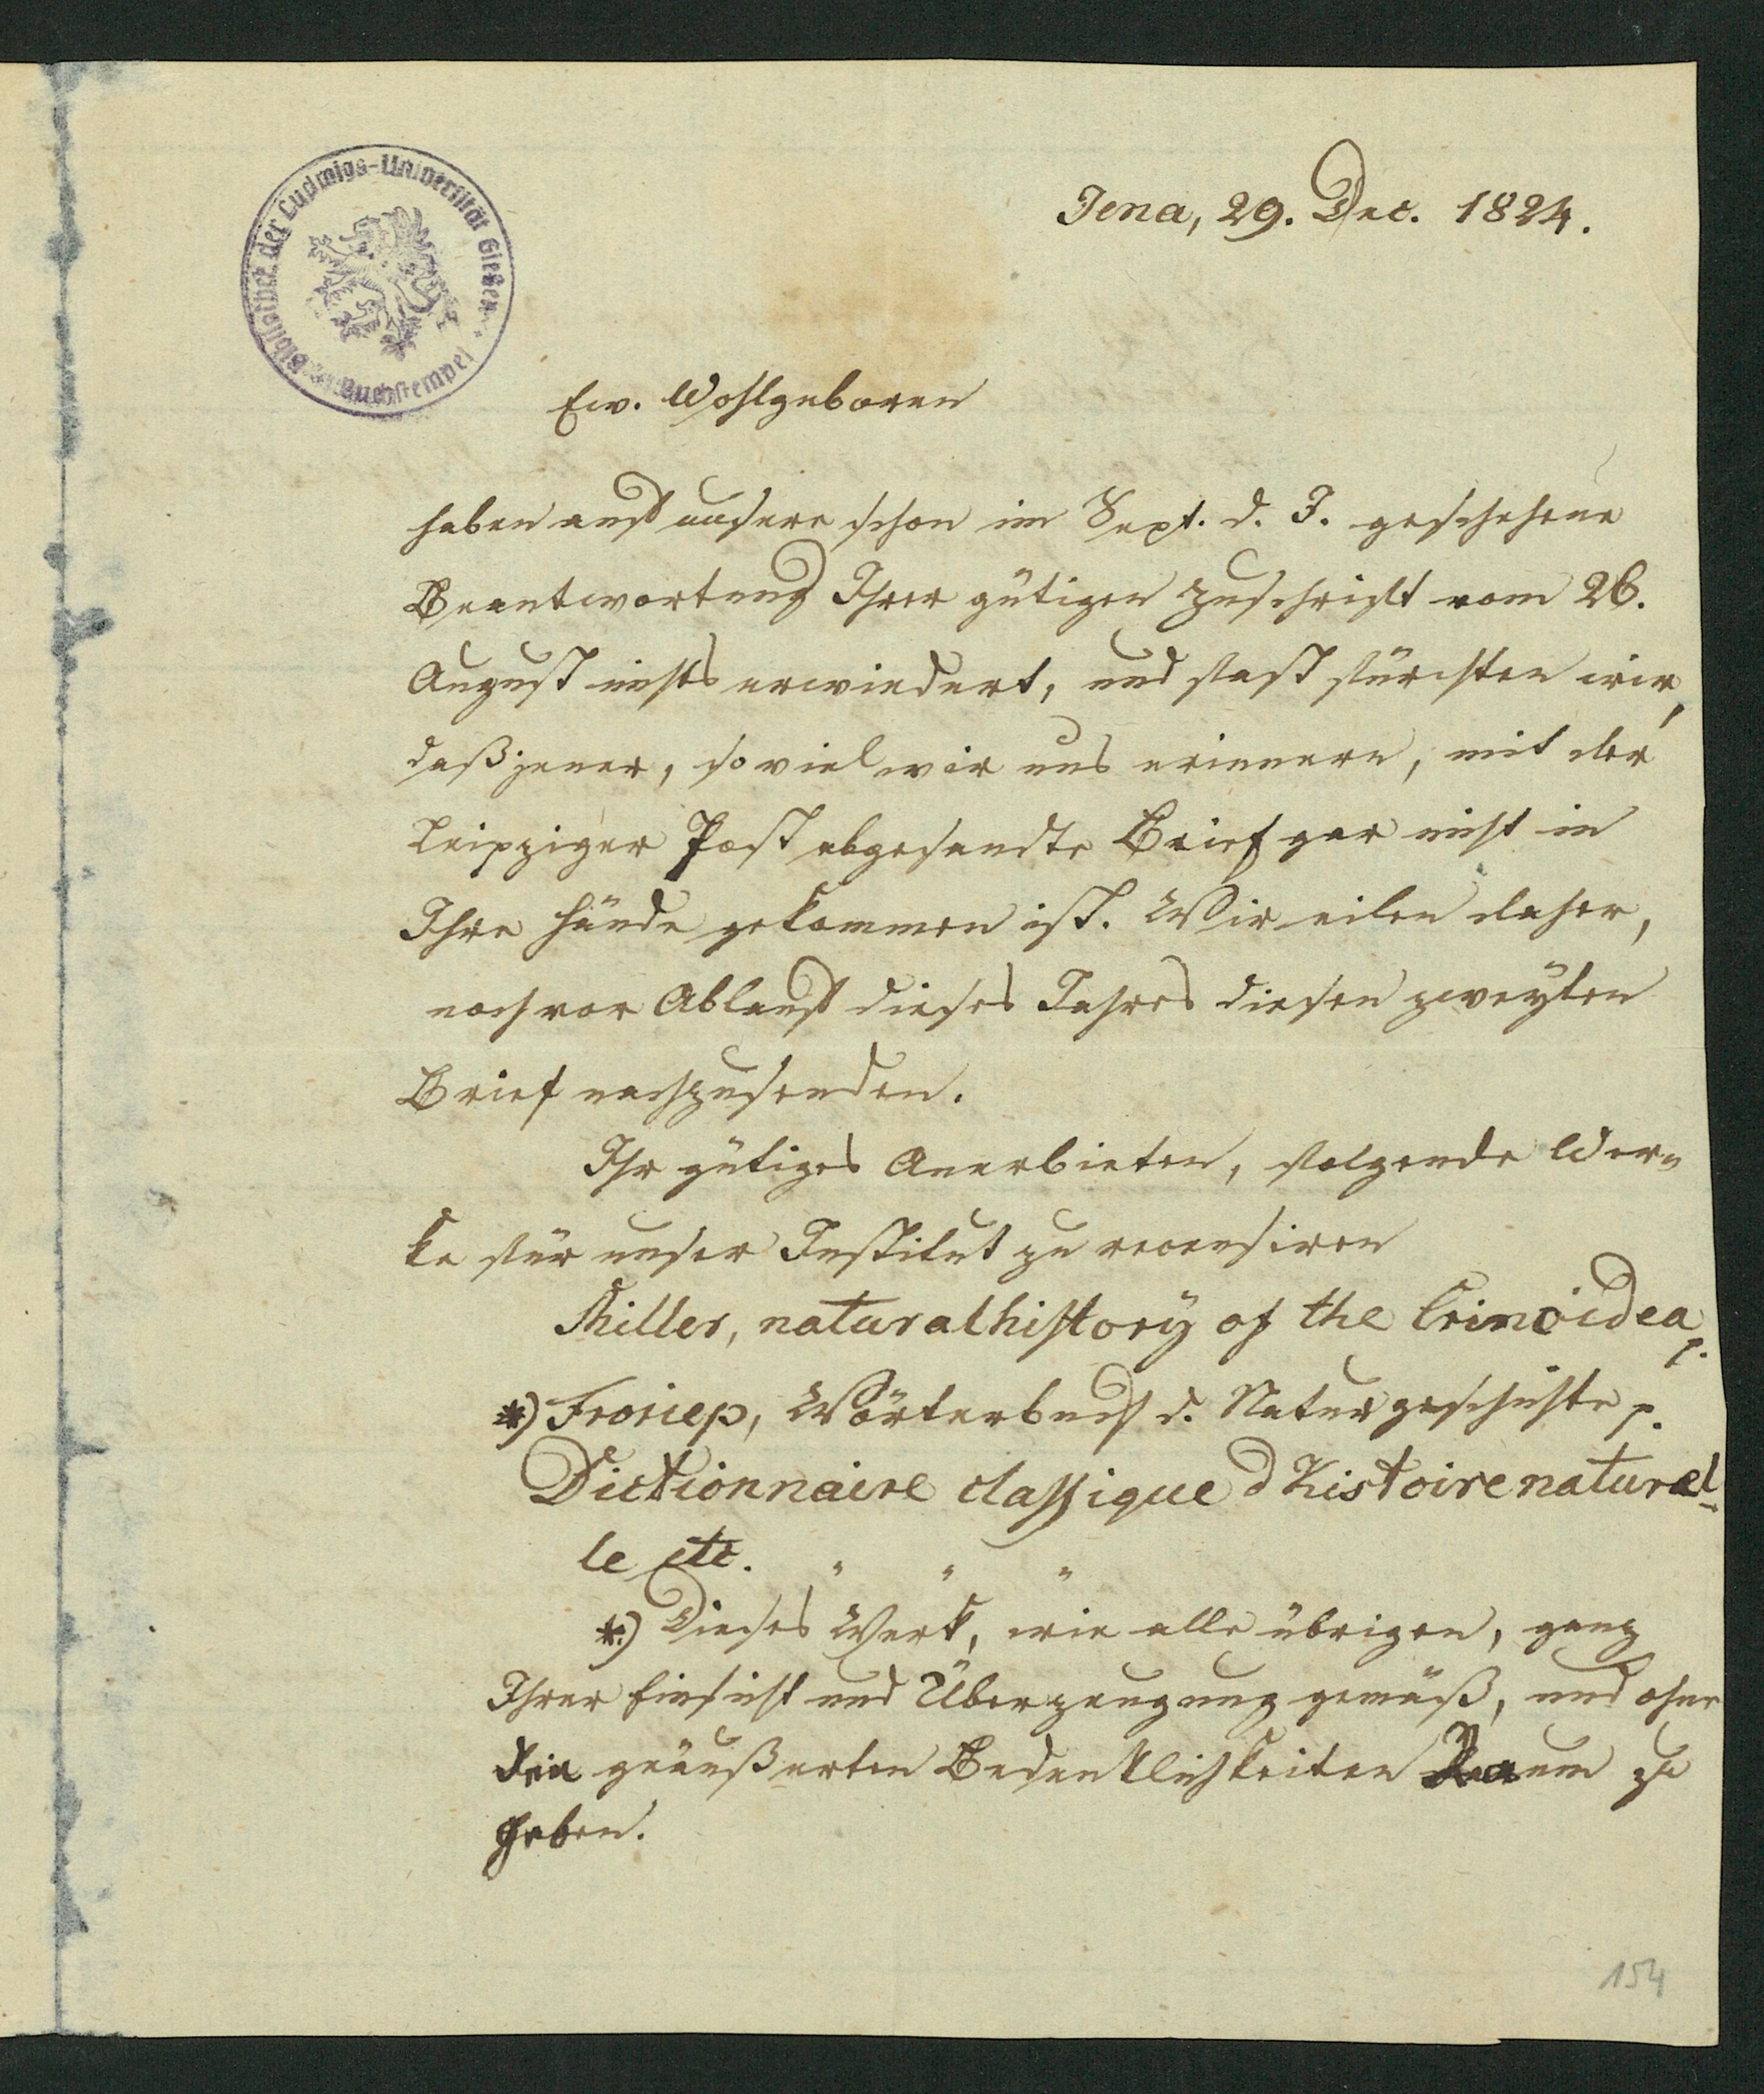 Bibliothek der Ludwigs-Universität Gießen
Buchstempel
Jena, 29. Dec. 1824.
Ew. Wohlgeboren
haben auf unsere schon im Sept. d. J. geschehene
Beantwortung Ihrer gütigen Zuschrift vom 26.
August nichts erwiedert, und fast fürchten wir,
daß jener, so viel wir uns erinnern, mit der
Leipziger Post abgesandte Brief gar nicht in
Ihre Hände gekommen ist. Wir eilen daher,
noch vor Ablauf dieses Jahres diesen zweyten
Brief nachzusenden.
Ihr gütiges Anerbieten, folgende Wer=
ke für unser Institut zu recensiren
Miller, natural history of the Crinoidea p.
*) Froriep, Wörterbuch d. Naturgeschichte p.
Dictionnaire classique d'histoire naturel-
le etc. " " "
*) Dieses Werk, wie alle übrigen, ganz
Ihrer Einsicht und Überzeugung gemäß, und ohne
den geäußerten Bedenklichkeiten Raum zu
geben.
154